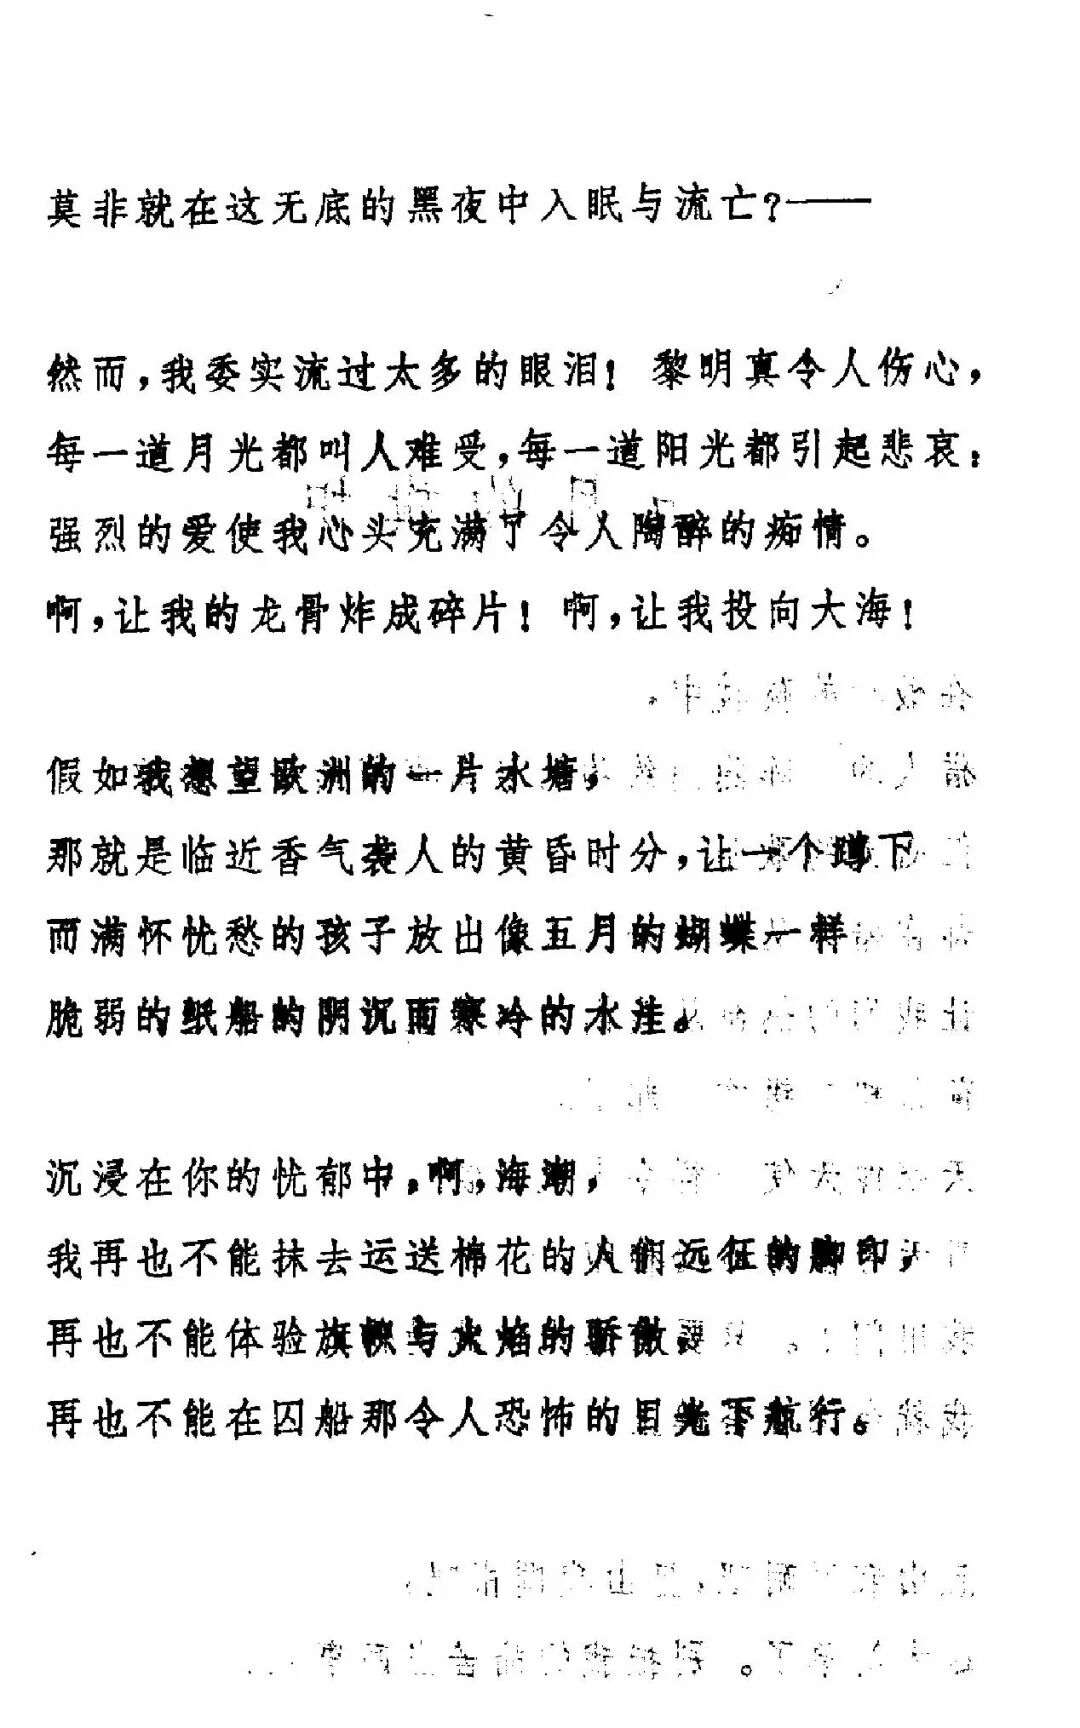 莫非就在这无底的黑夜中入眠与流亡?——
然而,我委实流过太多的眼泪! 黎明真令人伤心,
每一道月光都叫人难受,每一道阳光都引起悲哀:
强烈的爱使我心头充满了令人陶醉的痴情。
啊,让我的龙骨炸成碎片! 啊,让我投向大海!
假如我想望欧洲的一片水塘,
那就是临近香气袭人的黄昏时分,让一个蹲下
而满怀忧愁的孩子放出像五月的蝴蝶一样
脆弱的纸船的阴沉而寒冷的水洼。
沉浸在你的忧郁中,啊,海潮,
我再也不能抹去运送棉花的人们远征的脚印,
再也不能体验旗帜与火焰的骄傲,
再也不能在囚船那令人恐怖的目光下航行。